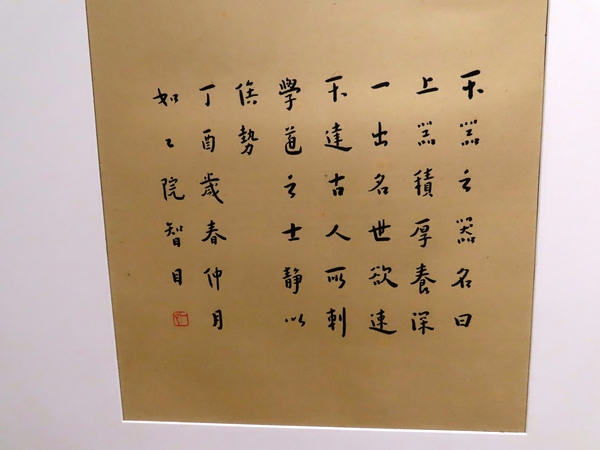 不器之器名曰
上器積厚養深
一出名世欲速
不達古人所刺
學道之士靜以
俟勢
丁酉歲春仲月
如々院智目